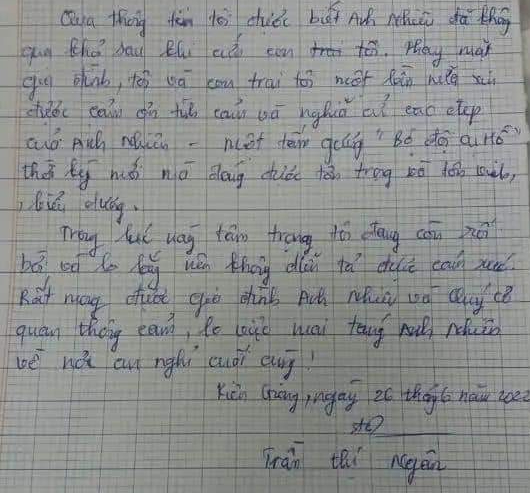 Qua thông tin tôi được biết Anh Nhiên đã không
qua khỏi sau khi cứu con tôi. Thay mặt
gia đình, tôi và con trai tôi một lần nữa xin
được cảm ơn tình cảm và nghĩa cử cao đẹp
của Anh Nhiên - một tấm gương "Bộ đội cụ Hồ"
thời kỳ mới mà đáng được tôn trọng và tôn vinh,
biểu dương.
Trong lúc này tâm trạng tôi đang còn rối
bời và lo lắng nên không diễn tả được cảm xúc.
Rất mong được gia đình Anh Nhiên và Quý cơ
quan thông cảm, lo việc mai táng Anh Nhiên
về nơi an nghỉ cuối cùng!
Kiên Giang, ngày 26 tháng 6 năm 2022
Trần thị Ngân